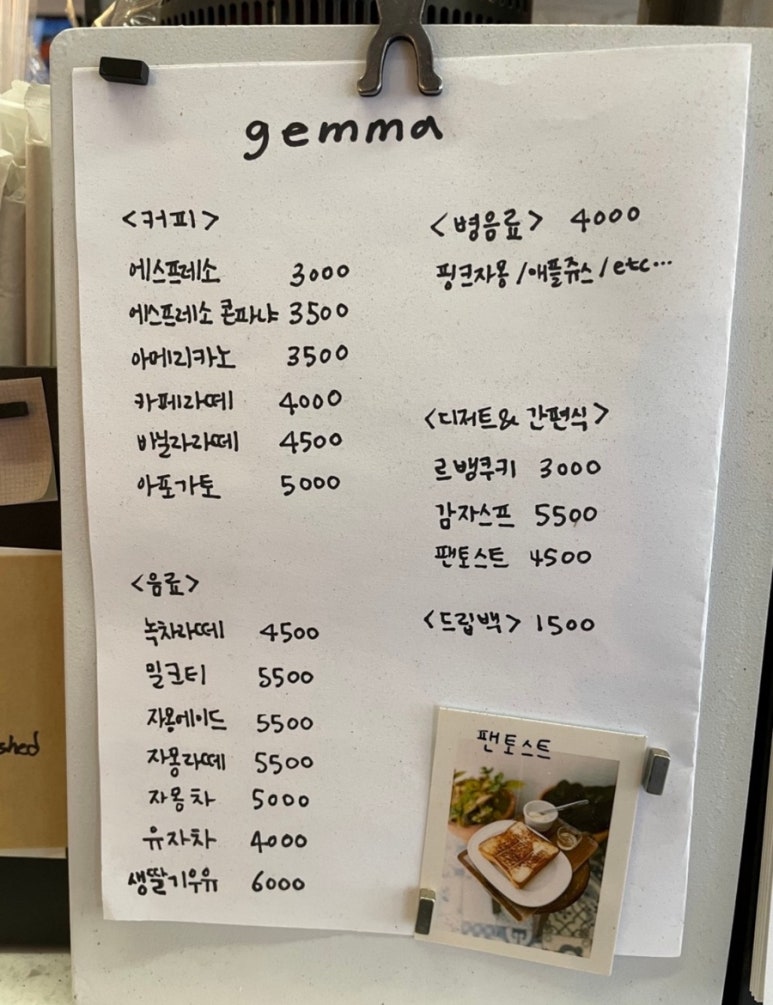 gemma
<커피>
에스프레소 3000
에스프레소 콘파냐 3500
아메리카노 3500
카페라떼 4000
바닐라라떼 4500
아포가토 5000
<음료>
녹차라떼 4500
밀크티 5500
자몽에이드 5500
자몽라떼 5500
자몽차 5000
유자차 4000
생딸기우유 6000
<병음료> 4000
핑크자몽/애플쥬스/etc...
<디저트& 간편식>
르뱅쿠키 3000
감자스프 5500
팬토스트 4500
<드립백> 1500
팬토스트
shed